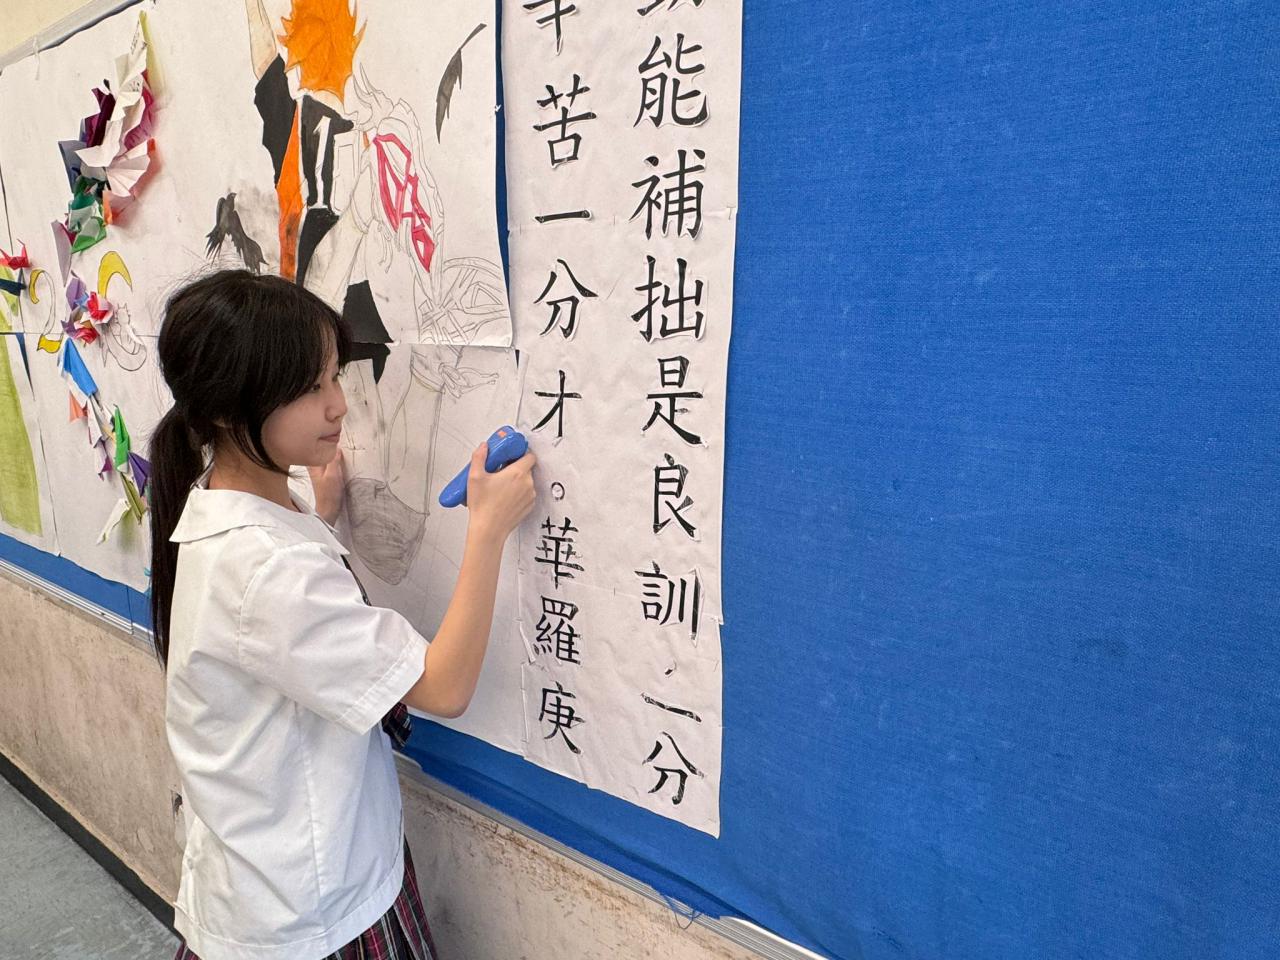 能補拙是良訓，一分
辛苦一分才。華羅庚